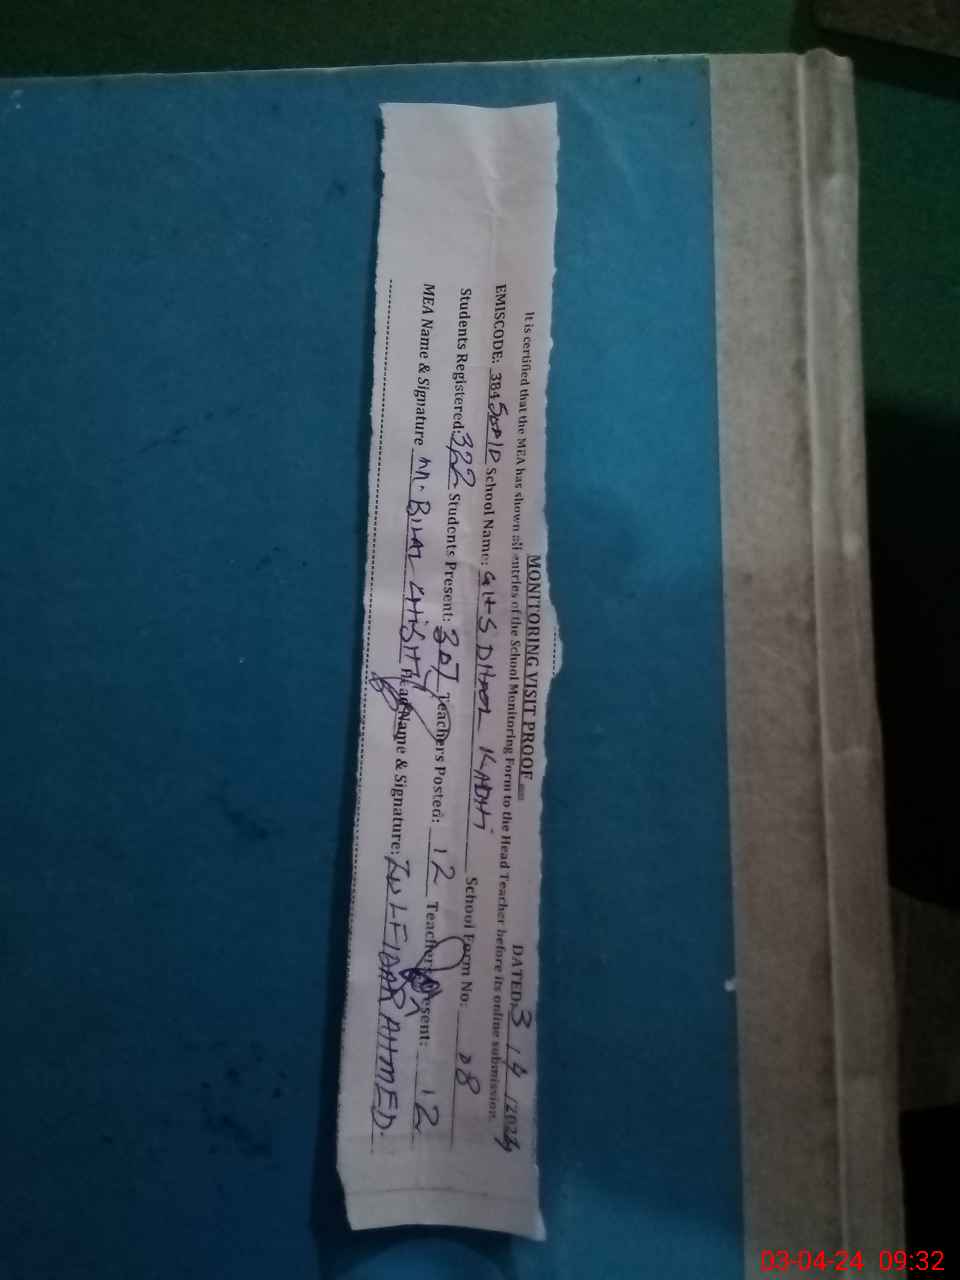 MONITORING VISIT PROOF
DATED: 3 / 4 /2024
It is certified that the MEA has shown all entries of the School Monitoring Form to the Head Teacher before its online submission.
EMISCODE: School Name: GHS DHAOL KADHI School Form No: 08
Students Registered: 322 Students Present: 307 Teachers Posted: 12 Teachers Present: 12
MEA Name & Signature M. BILAL CHISHTY Head Name & Signature: ZULFIQAR AHMED.
03-04-24 09:32